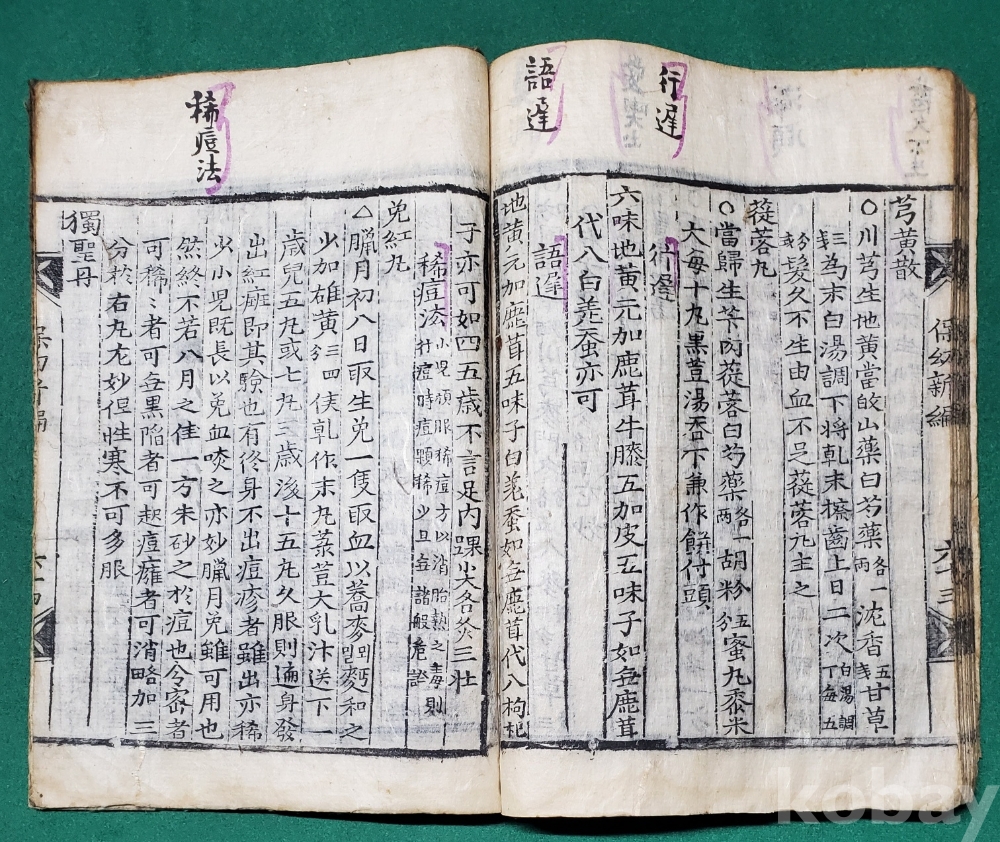 行遲
語遲
芎黃散
○川芎生地黃當故山藥白芍藥各一兩沈香五戔甘草
三戔為末白湯調下將乹末擦齒上日二次白湯調下每五
分髮久不生由血不足蓯蓉元主之
蓯蓉丸
○當歸生芐肉蓯蓉白芍藥各一兩胡粉五分蜜丸黍米
大每十丸黑荳湯吞下兼作餠付頭
行遲
六味地黃元加鹿茸牛膝五加皮五味子如無鹿茸
代入白羌蚕亦可
語遲
地黃元加鹿茸五味子白羌蚕如無鹿茸代入枸杞
保幼新編
六十三
稀痘法
子亦可如四五歲不言足內踝尖各灸三壯
稀痘法 小児頓服稀痘方以消胎熱之毒則
行痘時痘顆稀少且無諸般危證
兔紅丸
△臘月初八日取生兔一隻取血以蕎麥모밀麪和之
少加雄黃三四分俟乹作末丸菉荳大乳汁送下一
歲兒五丸或七丸三歲後十五丸久服則遍身發
出紅癍即其驗也有佟身不出痘疹者雖出亦稀
少小児既長以兔血啖之亦妙臘月兔雖可用也
然終不若八月之佳一方朱砂之於痘也令密者
可稀〻者可無黑陷者可起痘癰者可消略加三
分於右丸尤妙但性寒不可多服
獨聖丹
kobay